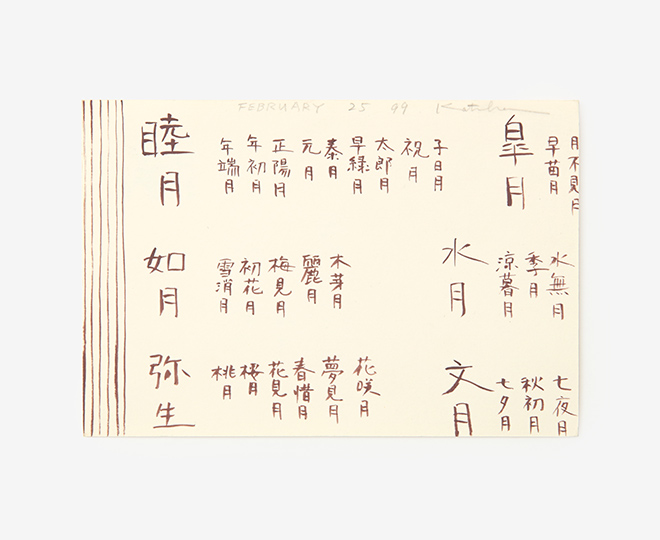 FEBRUARY 25 99
睦月
年端月
年初月
正陽月
元月
泰月
早緑月
太郎月
祝月
子日月
如月
雪消月
初花月
梅見月
麗月
木芽月
弥生
桃月
桜月
花見月
春惜月
夢見月
花咲月
皐月
早苗月
月不見月
水月
涼暮月
季月
水無月
文月
七夕月
秋初月
七夜月